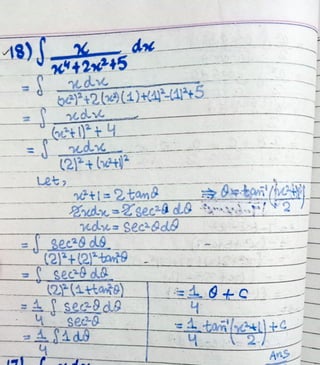 18) ∫ x / x⁴+2x²+5 dx
= ∫ xdx / (x²)²+2(x²)(1)+(1)²-(1)²+5
= ∫ xdx / (x²+1)²+4
= ∫ xdx / (2)²+(x²+1)²
Let,
x²+1 = 2 tanθ ⇒ θ = tan⁻¹(x²+1)/2
2xdx = 2 sec²θ dθ
xdx = sec²θdθ
= ∫ sec²θ dθ / (2)²+(2)²tan²θ
= ∫ sec²θ dθ / (2)²(1+tan²θ)
= 1/4 ∫ sec²θ dθ / sec²θ
= 1/4 ∫ 1 dθ
= 1/4 θ + C
= 1/4 tan⁻¹(x²+1 / 2) + C
Ans